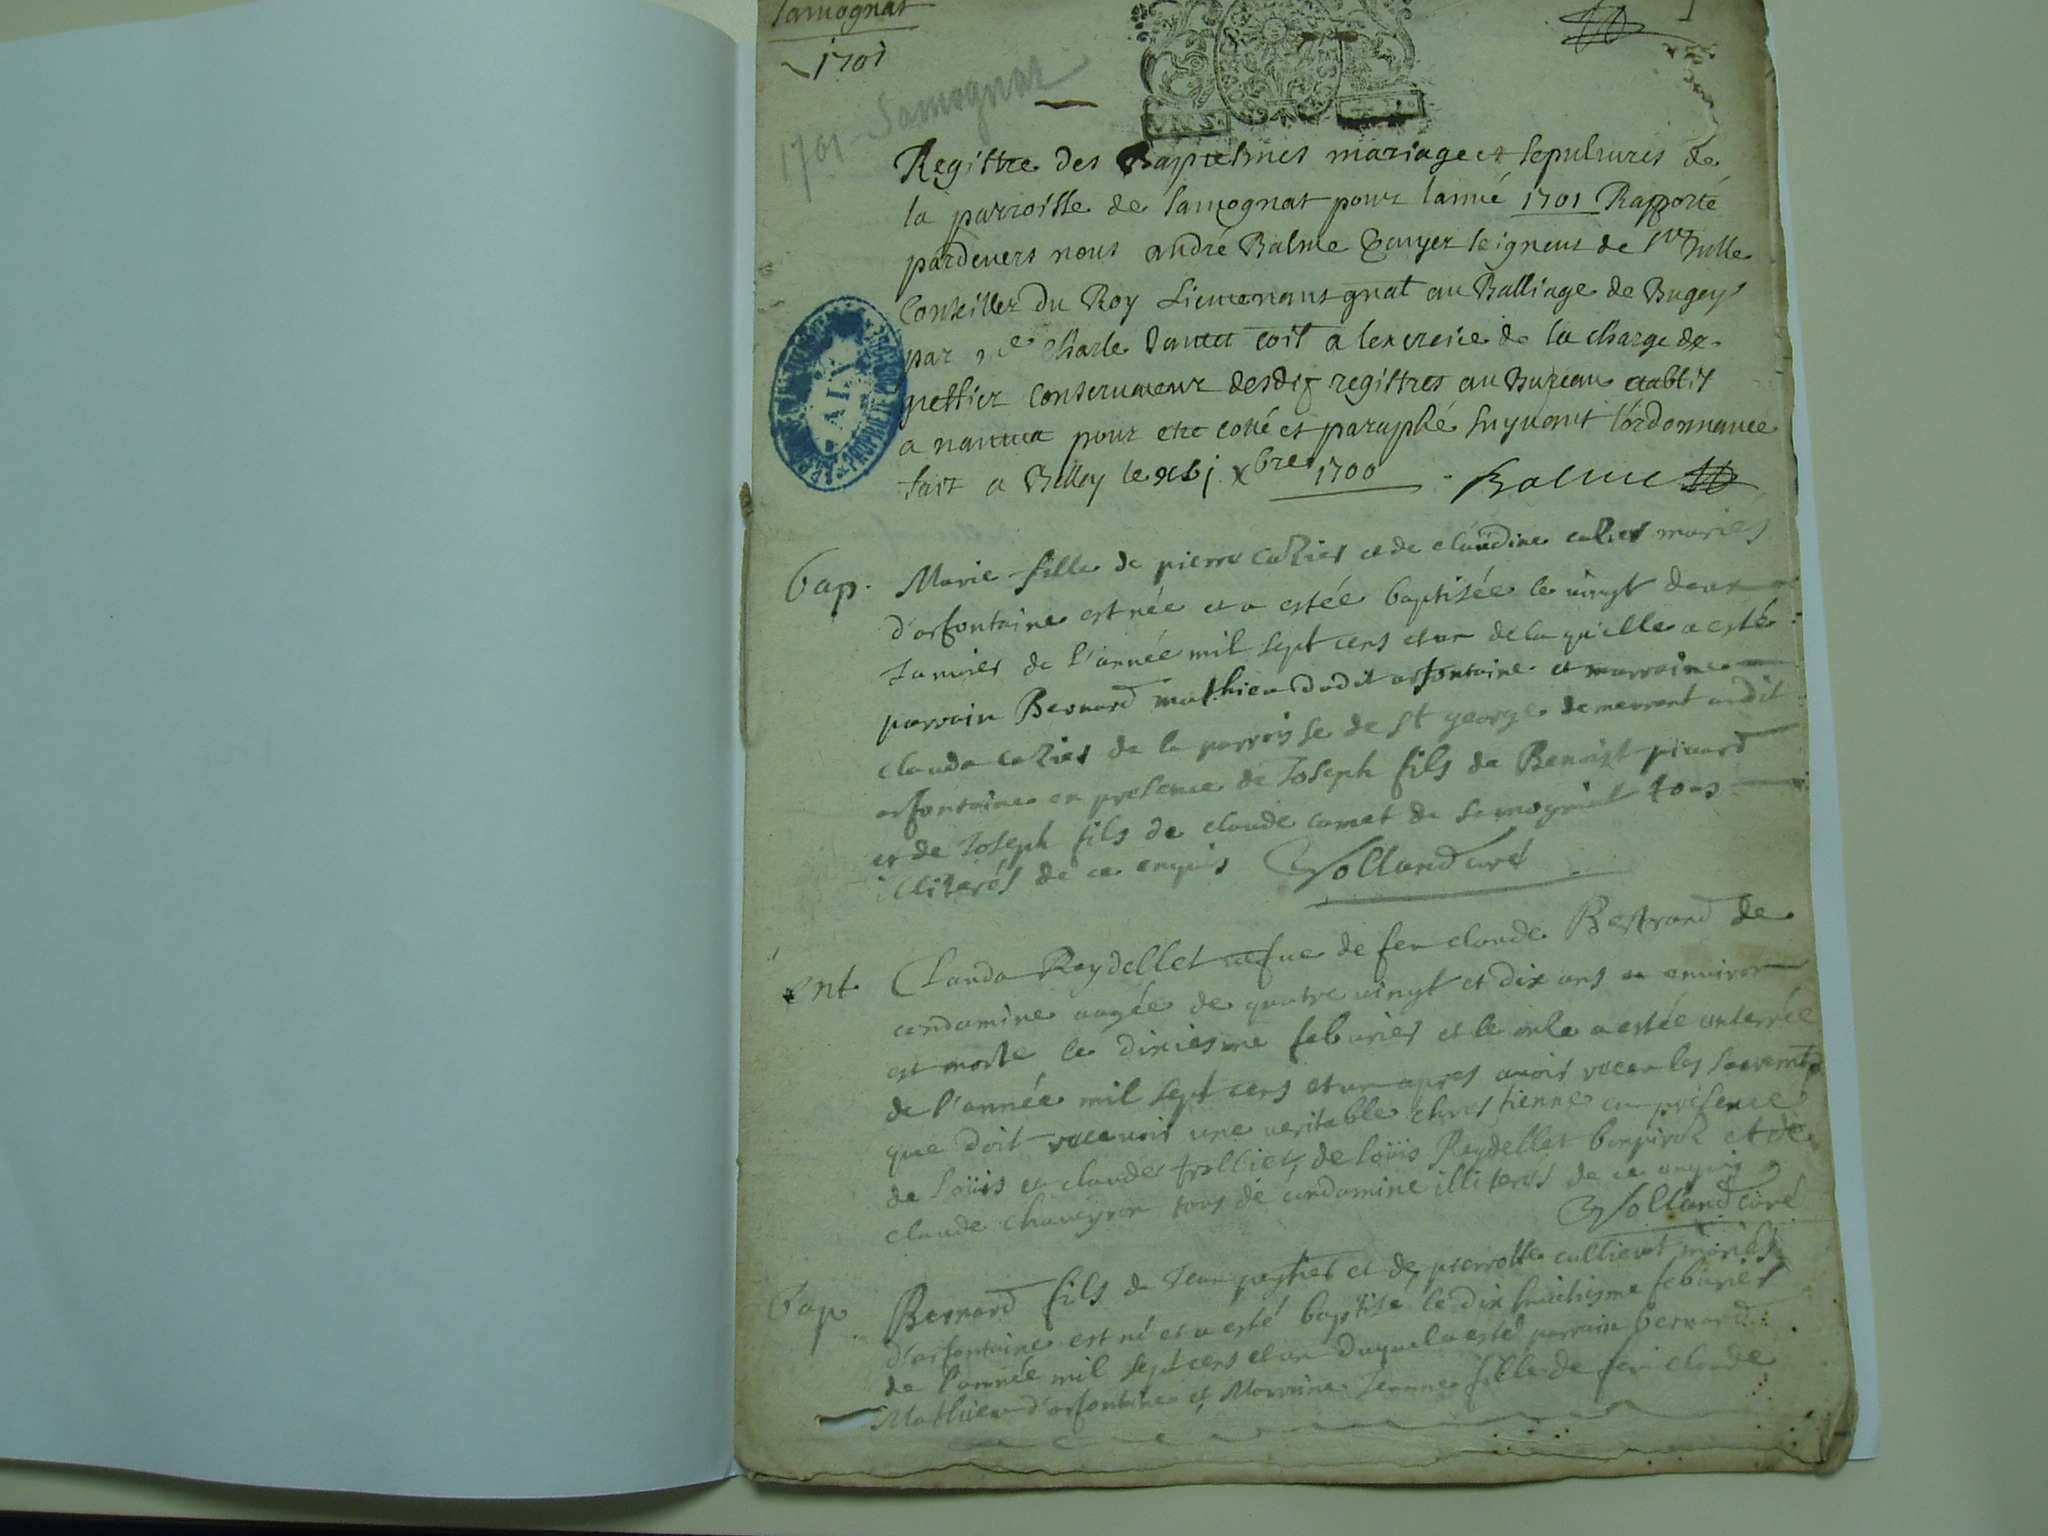 Samognat
1701
1701 Samognat
Registre des Baptesmes mariage et sepultures de
la parroisse de Samognat pour lanné 1701 Rapporté
pardevers nous andré Balme Escuyer seigneur de
Conseiller du Roy Lieutenant gnal au Balliage de Bugey
par Charle a lexercice de la charge de
greffier conservateur desdis registres au Bureau establit
a nantua pour etre cotté et paraphé suyvant l'ordonnance
fait a Belley le xbj xbre 1700 Balme
bap. Marie fille de pierre et de claudine mariés
d'orfontaine est née et a estée baptisée le vingt deux
Janvier de l'année mil sept cens et un de laquelle a esté
parrain Bernard mathieu dudit orfontaine et marraine
clauda de la parroisse de st george demeurant audit
orfontaine en presence de Joseph fils de Benoist pinard
et de Joseph fils de claude de Samognat tous
illiterés de ce enquis Volland curé
ent Clauda Reydellet vefue de feu claude Bertrand de
condamine aagée de quatre vingt et dix ans ou environ
est morte le dixiesme feburier et le onze a estée enterrée
de l'année mil sept cens et un apres avoir receu les sacremts
que doit recevoir une veritable chrestienne en presence
de Loüis et claude trolliet, de Loüis Reydellet et de
claude chaveyron tous de condamine illiterés de ce enquis
Volland curé
bap Bernard fils de Jean et de pierrotte mariés
d'orfontaine est né et a esté baptisé le dix huictiesme feburier
de l'année mil sept cens et un duquel a esté parrain bernard
Mathieu d'orfontaine et Marraine Jeanne fille de feu claude